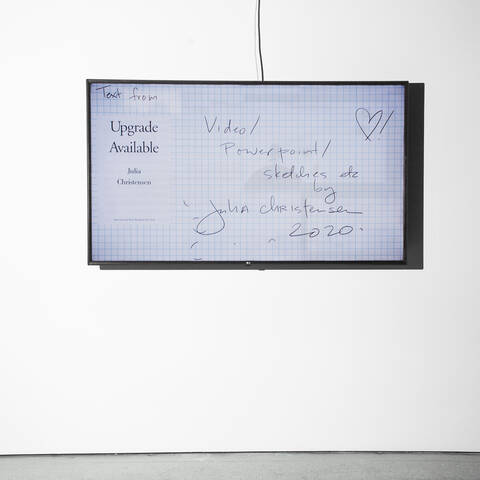 Text from
Upgrade
Available
Julia
Christensen
Video/
Powerpoint/
sketches etc
by
Julia Christensen
2020.